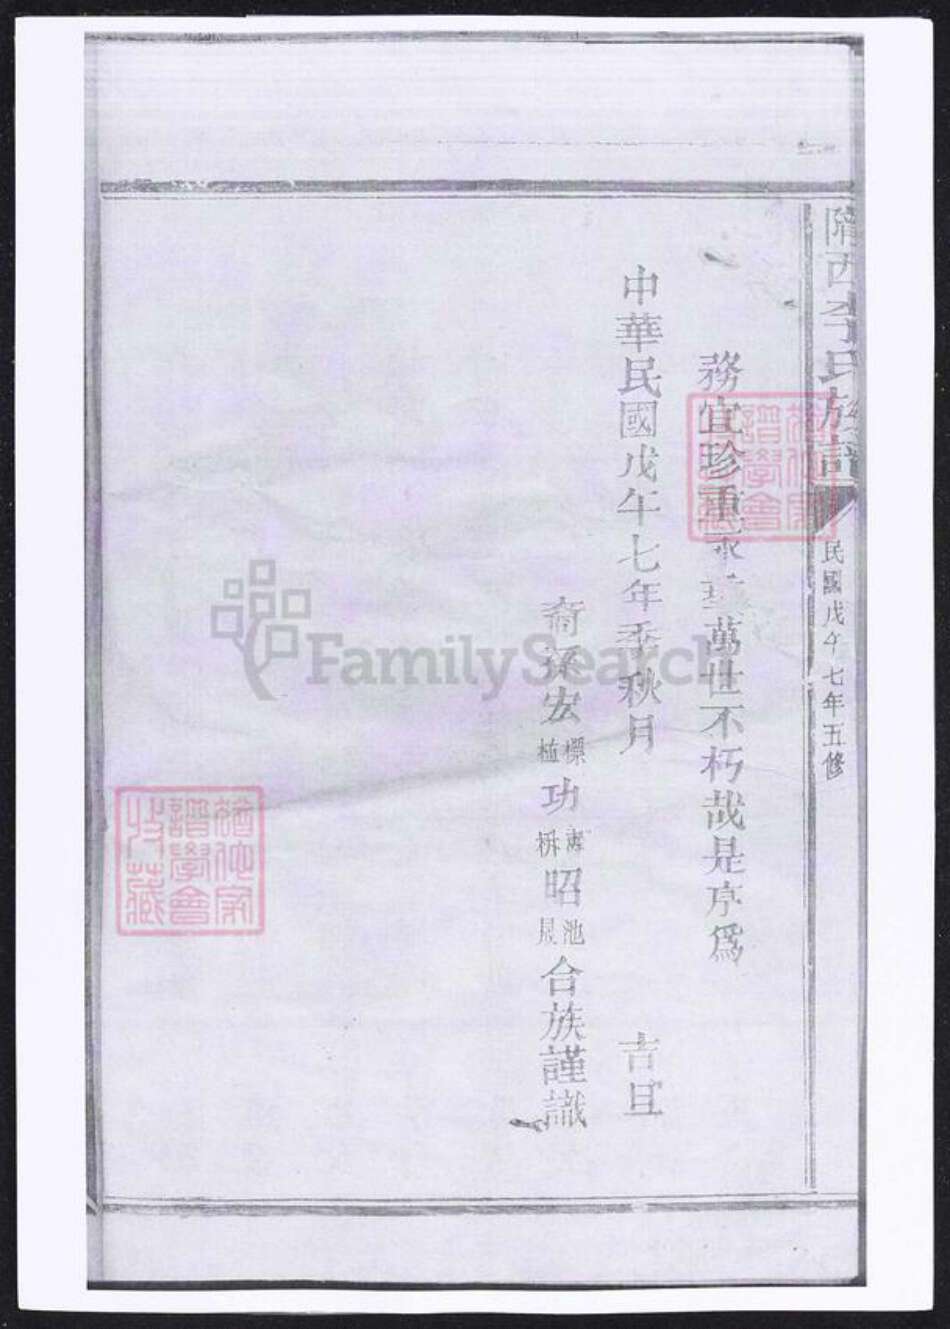 隴西李氏族譜
民國戊午七年五修
務宜珍重 萬世不朽哉是序爲
中華民國戊午七年季秋月 吉旦
裔孫宏標植功 栟昭池晟合族謹識
譜學會
譜學會收藏
FamilySearch